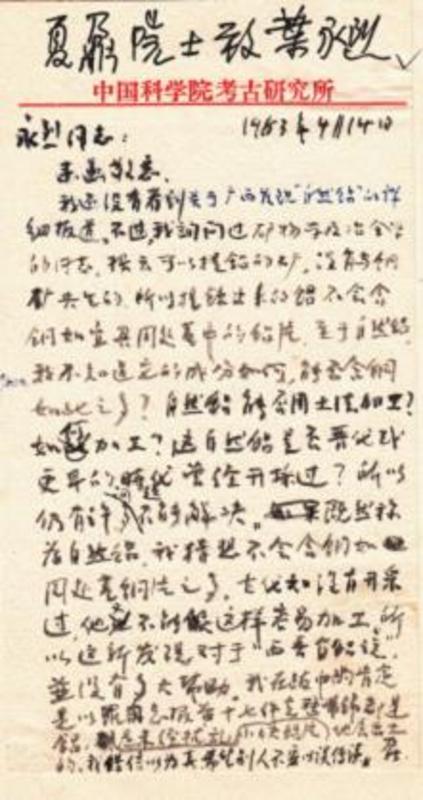 夏鼐院士致葉永烈
中国科学院考古研究所
永烈同志： 1983年4月14日
来函敬悉。
我还没有看到关于广西发现"自然铝"的详
细报道。不过，我询问过矿物学及冶金学
的同志，据云可以提铝的矿，没有与铜
矿共生的，所以提炼出来的铝不会含
铜如宜兴周处墓中的铝片。至于自然铝，
我不知道它的成分如何，能否含铜
如此之多？自然铝能否用土法加工？
如何加工？这自然铝是否晋代或
更早的时代曾经开採过？所以
仍有许多不能解决。既然称
为自然铝，我猜想不会含铜如
周处墓铜片之多，古代如没有开采
过，他也不能这样容易加工，所
以这新发现对于"西晋有铝说"，
並没有多大帮助。我在文中的肯定
是以十七件
铝，小块铝片地
的，我